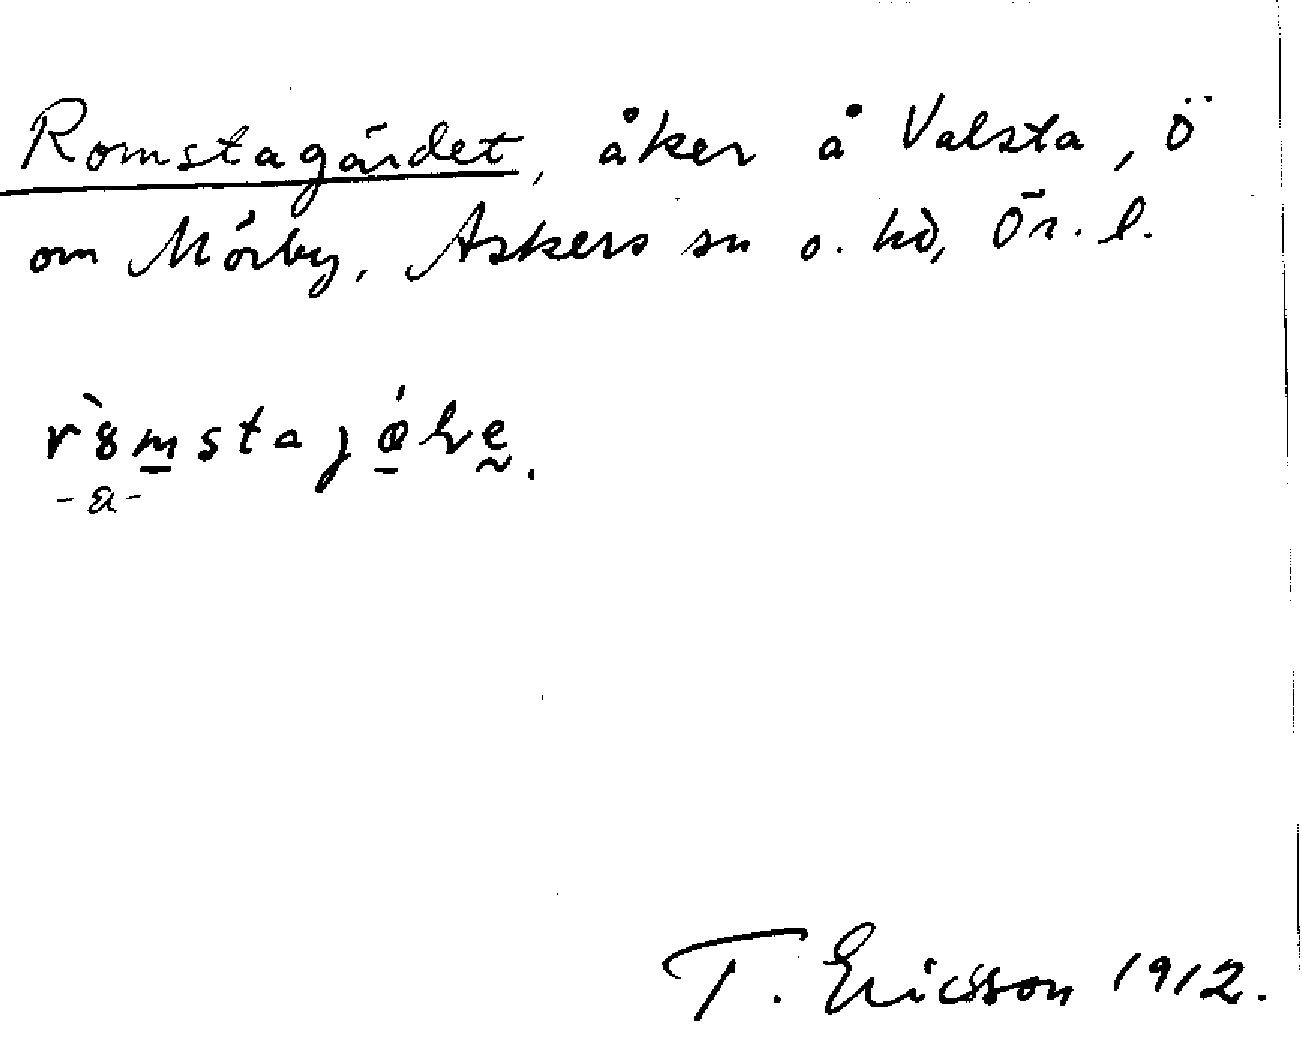 Romstagärdet, åker å Valsta, Ö
om Mörby, Askers sn o. hd, Ör. l.
-a-
T. Ericsson 1912.